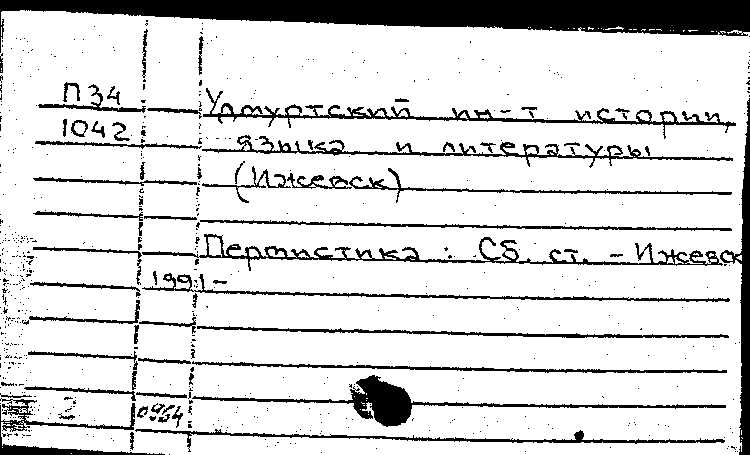 П34 Удмуртский ин-т истории,
1042 языка и литературы
(Ижевск)
Пермистика : Сб. ст. – Ижевск
1991 –
2 0964